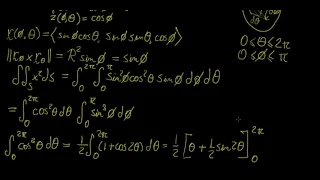 z(ø,θ) = cosø
r(ø,θ) = ⟨sinø cosθ, sinø sinθ, cosø⟩
0 ≤ θ ≤ 2π
‖rø × rθ‖ = R² sinø = sinø
0 ≤ ø ≤ π
∬_S x² ds = ∫₀^2π ∫₀^π sin²ø cos²θ sinø dø dθ
= ∫₀^2π cos²θ dθ ∫₀^π sin³ø dø
∫₀^2π cos²θ dθ = 1/2 ∫₀^2π (1 + cos2θ) dθ = 1/2 [θ + 1/2 sin2θ]₀^2π